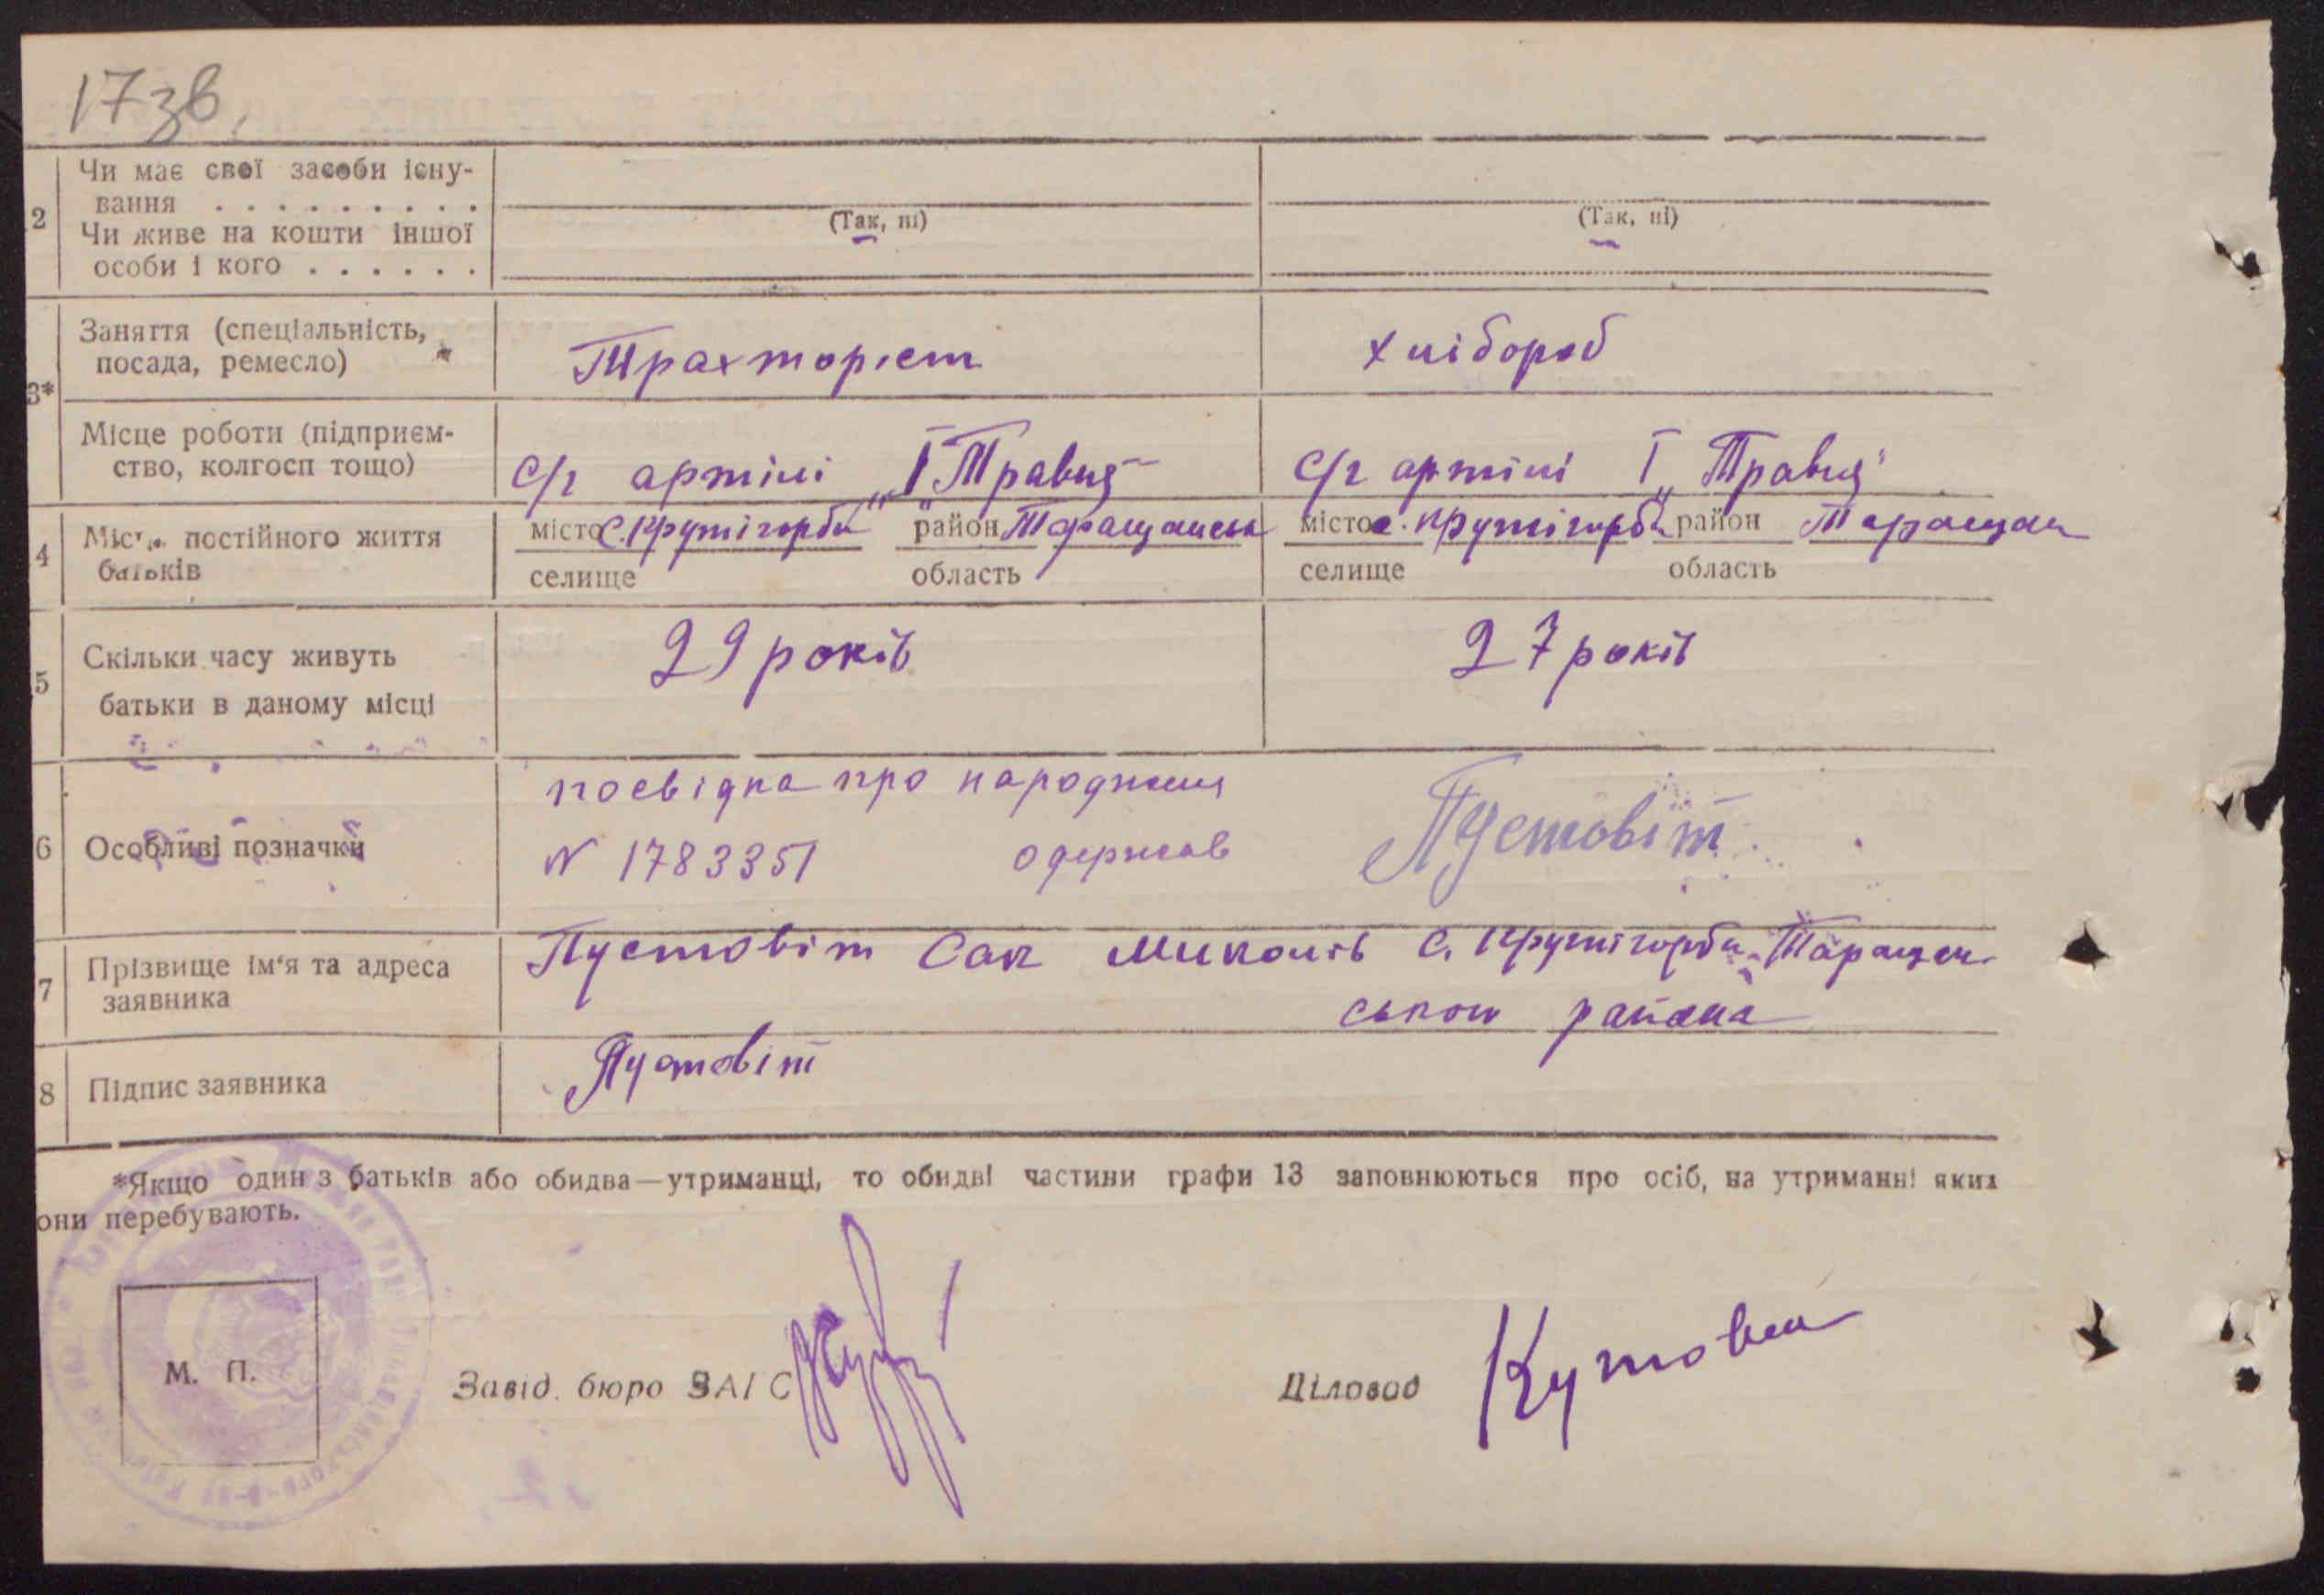 17зв.
2 Чи має свої засоби існу-
вання . . . . . . . . .
(Так, ні) (Так, ні)
Чи живе на кошти іншої
особи і кого . . . . . .
3* Заняття (спеціальність,
посада, ремесло)
Трахторіст хлібороб
Місце роботи (підприєм-
ство, колгосп тощо)
с/г артілі „І Травця" с/г артілі І „Травця"
4 Місце постійного життя
батьків
місто с. Крутігорби район Таращанськ місто с. Крутігорби район Таращан
селище область селище область
5 Скільки часу живуть
батьки в даному місці
29 років 27 років
6 Особливі позначки
посвідка про народження
N 1783351 одержав Пустовіт
7 Прізвище ім'я та адреса
заявника
Пустовіт Сак Миколів с. Крутігорби Таращан-
ського района
8 Підпис заявника
Пустовіт
*Якщо один з батьків або обидва—утриманці, то обидві частини графи 13 заповнюються про осіб, на утриманні яких
они перебувають.
М. П.
Завід. бюро ЗАГС
Діловод Кутова